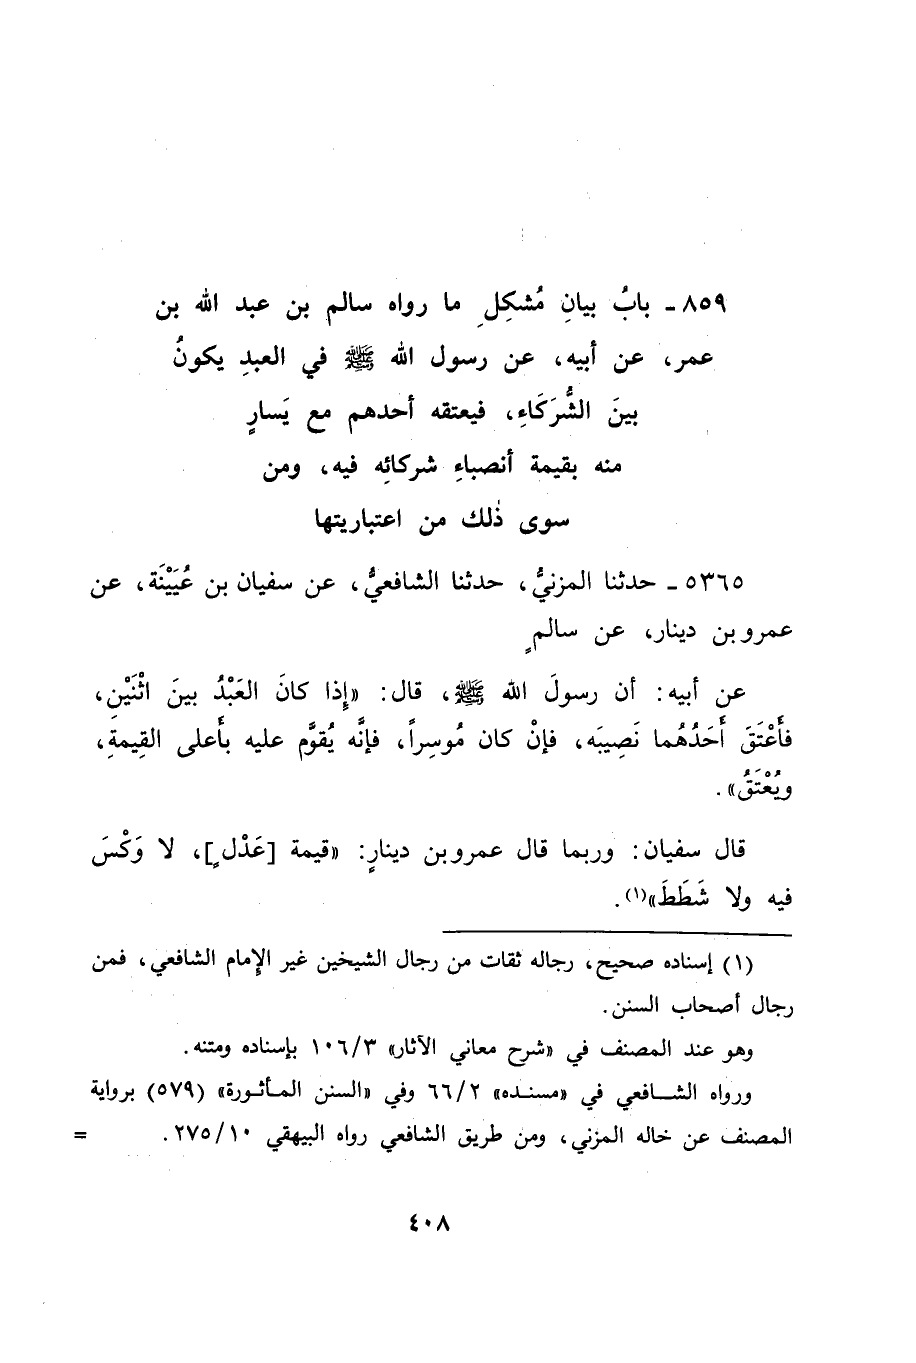 ٨٥٩ ـ بابُ بيانِ مُشكِلِ ما رواه سالم بن عبد الله بن
عمر، عن أبيه، عن رسول الله ﷺ في العبدِ يكونُ
بينَ الشُّرَكَاءِ، فيعتقه أحدهم مع يَسارٍ
منه بقيمة أنصباءِ شركائِه فيه، ومن
سوى ذٰلك من اعتباريتها
٥٣٦٥ ـ حدثنا المزنيُّ، حدثنا الشافعيُّ، عن سفيان بن عُيَيْنَة، عن
عمرو بن دينار، عن سالمٍ
عن أبيه: أن رسولَ الله ﷺ، قال: «إِذا كانَ العَبْدُ بينَ اثْنَيْنِ،
فأَعْتَقَ أَحَدُهُما نَصِيبَه، فإنْ كان مُوسِراً، فإنَّه يُقوَّم عليه بأَعلى القِيمةِ،
ويُعْتَقُ».
قال سفيان: وربما قال عمرو بن دينارٍ: «قيمة [عَدْلٍ]، لا وَكْسَ
فيه ولا شَطَطَ»(١).
(١) إسناده صحيح، رجاله ثقات من رجال الشيخين غير الإمام الشافعي، فمن
رجال أصحاب السنن.
وهو عند المصنف في «شرح معاني الآثار» ١٠٦/٣ بإسناده ومتنه.
ورواه الشافعي في «مسنده» ٦٦/٢ وفي «السنن المأثورة» (٥٧٩) برواية
المصنف عن خاله المزني، ومن طريق الشافعي رواه البيهقي ٢٧٥/١٠. =
٤٠٨